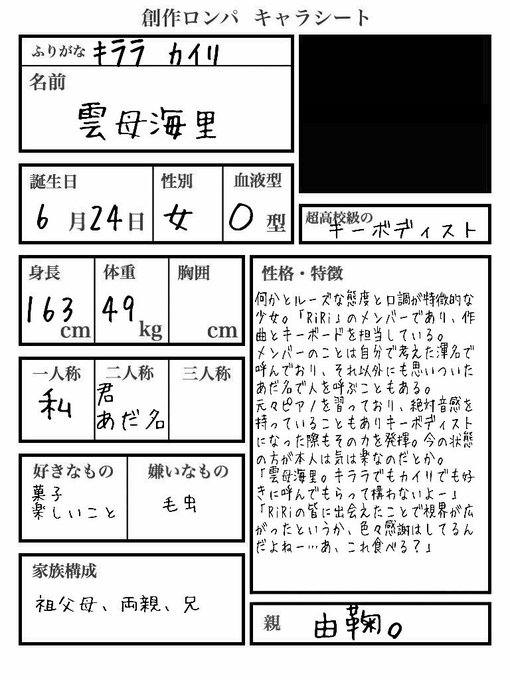 創作ロンパ キャラシート
ふりがな キララ カイリ
名前
雲母海里
誕生日 性別 血液型
6月24日 女 O型
超高校級の
キーボディスト
身長 体重 胸囲
163cm 49kg cm
一人称 二人称 三人称
私 君
あだ名
好きなもの 嫌いなもの
菓子
楽しいこと 毛虫
家族構成
祖父母、両親、兄
性格・特徴
何かとルーズな態度と口調が特徴的な
少女。「RiRi」のメンバーであり、作
曲とキーボードを担当している。
メンバーのことは自分で考えた渾名で
呼んでおり、それ以外にも思いついた
あだ名で人を呼ぶこともある。
元々ピアノを習っており、絶対音感を
持っていることもありキーボディスト
になった際もその力を発揮。今の状態
の方が本人は気は楽なのだとか。
「雲母海里。キララでもカイリでも好
きに呼んでもらって構わないよー」
「RiRiの皆に出会えたことで視界が広
がったというか、色々感謝はしてるん
だよねー…あ、これ食べる？」
親 由鞠。